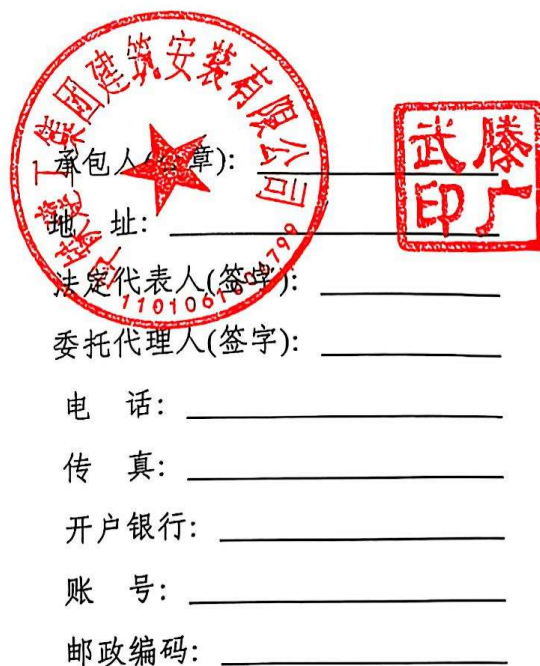 工集团建筑安装有限公司
滕广武印
承包人(章):
地 址:
法定代表人(签字):
委托代理人(签字):
电 话:
传 真:
开户银行:
账 号:
邮政编码: